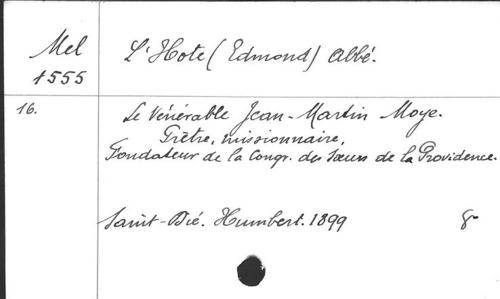 Mel
1555
L'Hote (Edmond) Abbé.
16.
Le Vénérable Jean-Martin Moye.
Prêtre, missionnaire,
Fondateur de la Congr. des Sœurs de la Providence.
Saint-Dié. Humbert. 1899
8º